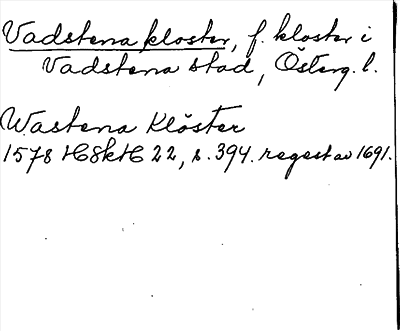 Vadstena kloster, f. kloster i
Vadstena stad, Österg. l.
Wastena Klöster
1578 HSkH 22, s. 394. regest av 1691.